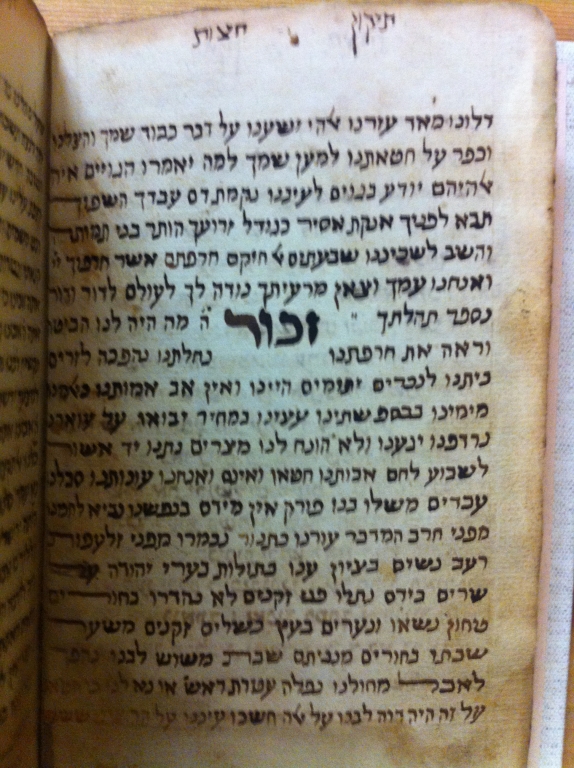 תיקון חצות
דלונו מאד עזרנו אהי ישענו על דבר כבוד שמך והצלנו
וכפר על חטאתנו למען שמך למה יאמרו הגויים איה
אהיהם יודע בגוים לעינינו נקמת דם עבדך השפוך
תבא לפניך אנקת אסיר כגודל זרועך הותר בני תמותה
והשב לשכיננו שבעתים א חיקם חרפתם אשר חרפוך
ואנחנו עמך וצאן מרעיתך נודה לך לעולם לדור ודור
נספר תהלתך זכור ה' מה היה לנו הביטה
וראה את חרפתנו נחלתנו נהפכה לזרים
בתינו לנכרים יתומים היינו ואין אב אמותנו
מימינו בכסף שתינו עצינו במחיר יבואו על צוארנו
נרדפנו יגענו ולא הונח לנו מצרים נתנו יד אשור
לשבוע לחם אבותנו חטאו ואינם ואנחנו עונותנו סבלנו
עבדים משלו בנו פורק אין מידם בנפשנו נביא לחמנו
מפני חרב המדבר עורנו כתנור נכמרו מפני זלעפות
רעב נשים בציון ענו בתולות בערי יהודה
שרים בידם נתלו פני זקנים לא נהדרו בחורים
טחון נשאו ונערים בעץ כשלים זקנים משער
שבתו בחורים מנגינתם שבת משוש לבנו נהפך
לאבל מחולנו נפלה עטרת ראשנו או נא לנו כי חטאנו
על זה היה דוה לבנו על אה חשכו עינינו על הר ציון